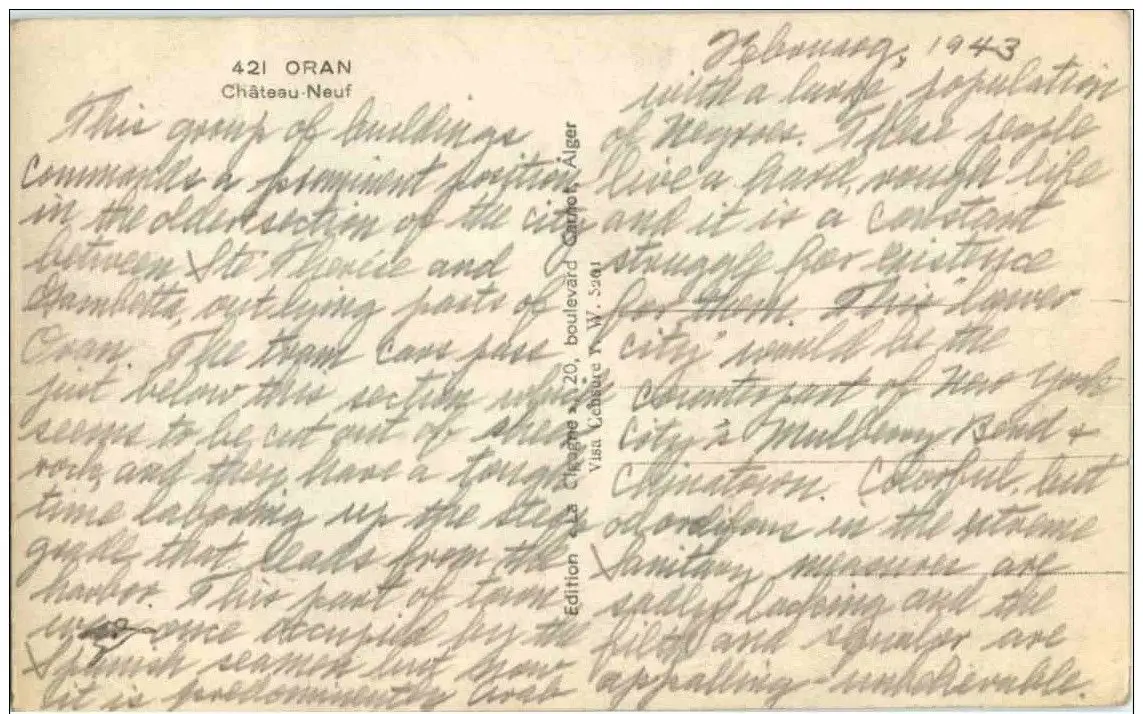 421 ORAN
Château-Neuf
This group of buildings
commands a prominent position
in the older section of the city
between Ste Therése and
Gambetta, outlying parts of
Oran. The tram cars pass
just below this section which
seems to be cut out of sheer
rock, and they have a tough
time laboring up the steep
grade that leads from the
harbor. This part of town
was once occupied by the
Spanish seamen but now
it is predominently Arab
Edition « La Cigogne », 20, boulevard Carnot, Alger
Visa Censure N. W. 5201
February, 1943
with a large population
of Negroes. These people
live a hard, rough life
and it is a constant
struggle for existence
for them. This "lower
city" would be the
counterpart of New York
City's Mulberry Bend &
Chinatown. Colorful, but
odoriferous in the extreme
Sanitary measures are
sadly lacking and the
filth and squalor are
appalling - unbelievable.